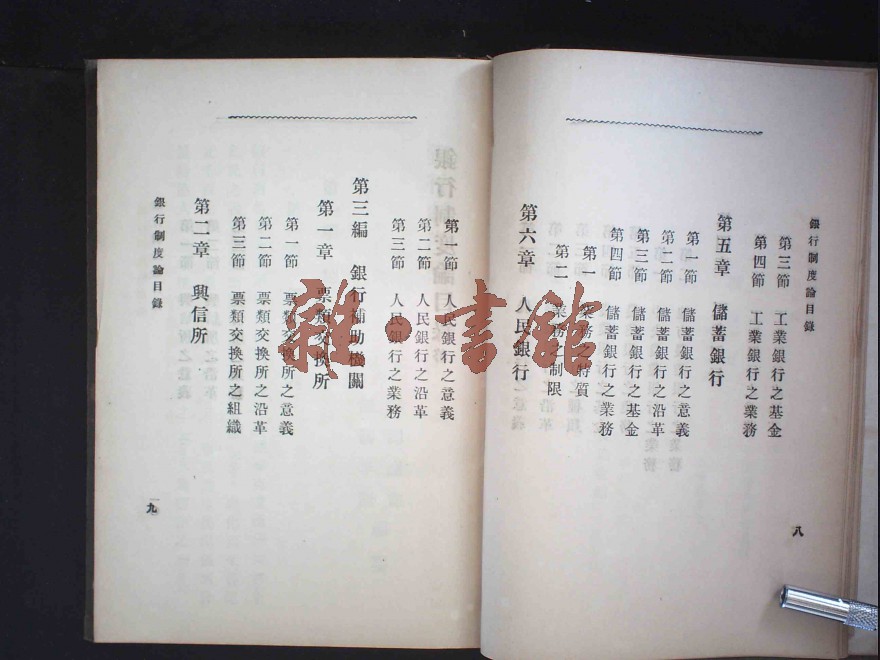 銀行制度論目錄
第三節 工業銀行之基金
第四節 工業銀行之業務
第五章 儲蓄銀行
第一節 儲蓄銀行之意義
第二節 儲蓄銀行之沿革
第三節 儲蓄銀行之基金
第四節 儲蓄銀行之業務
第一 業務之特質
第二 業務之制限
第六章 人民銀行
八
第一節 人民銀行之意義
第二節 人民銀行之沿革
第三節 人民銀行之業務
第三編 銀行補助機關
第一章 票類交換所
第一節 票類交換所之意義
第二節 票類交換所之沿革
第三節 票類交換所之組織
第二章 興信所
銀行制度論目錄
九
雜·書館